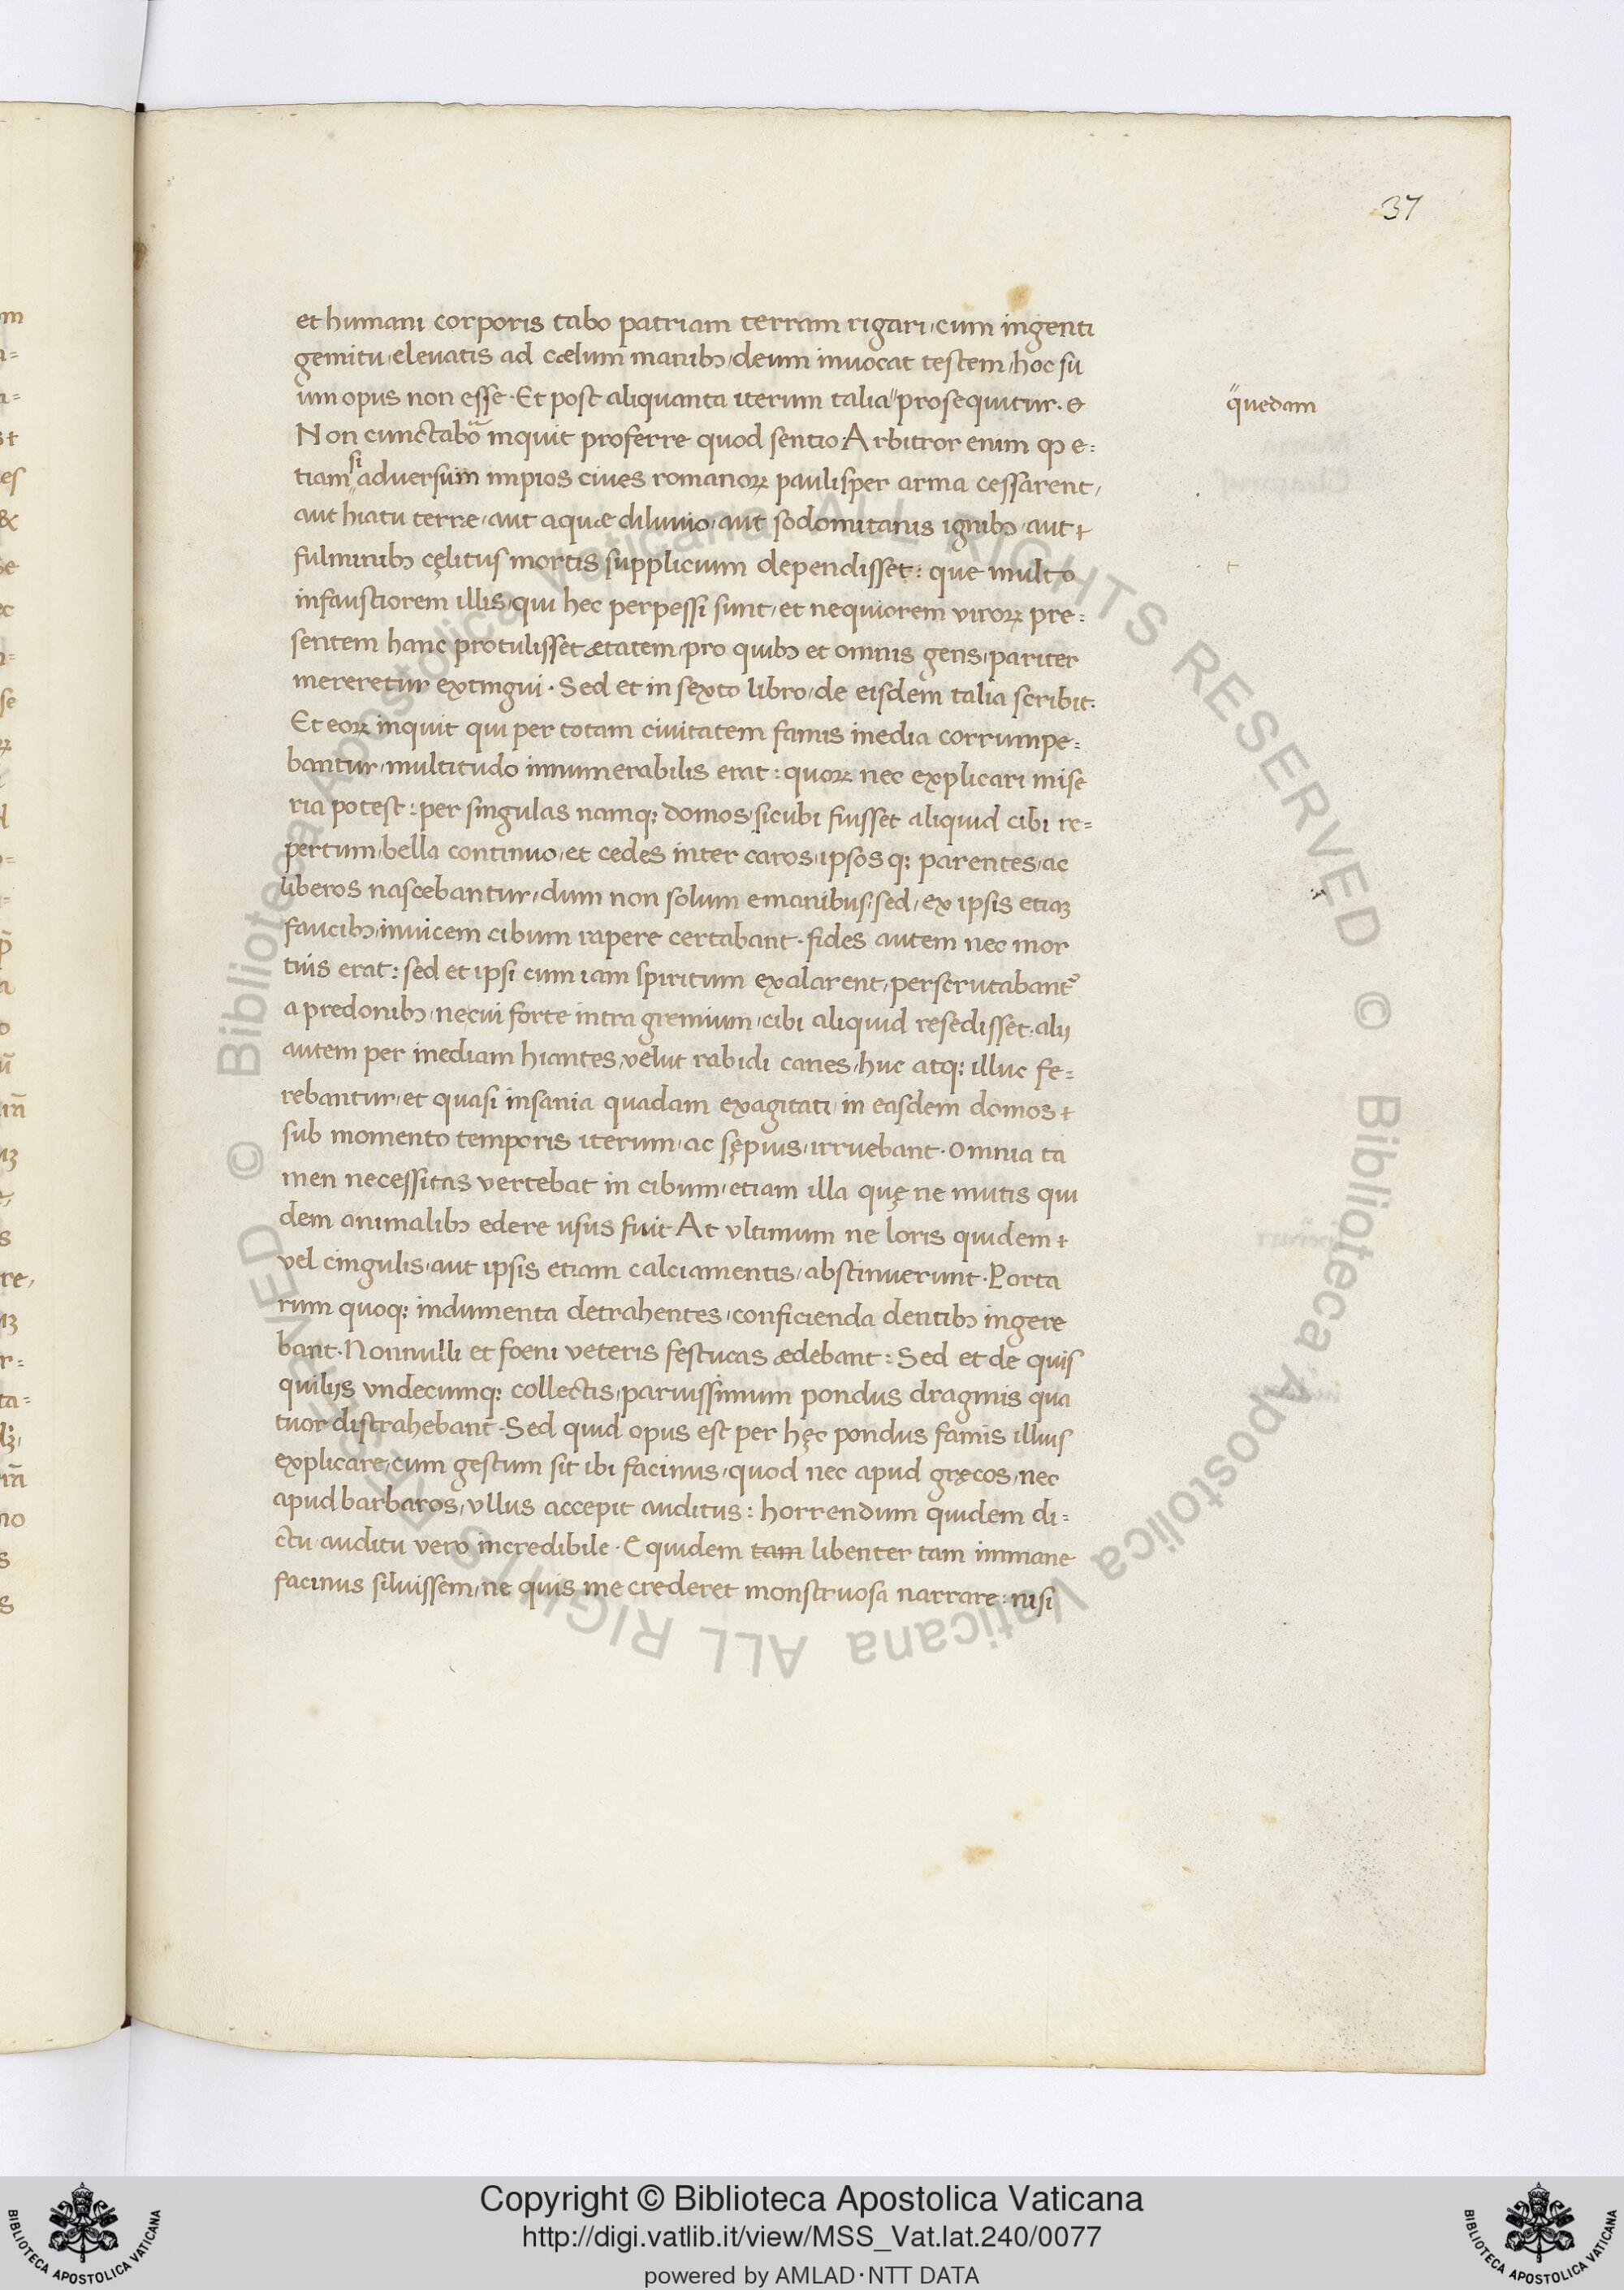 37
et humani corporis tabo patriam terram rigari, cum ingenti
gemitu, elevatis ad cælum manibꝫ, deum invocat testem, hoc su
um opus non esse. Et post aliquanta iterum talia" prosequitur. &
"quedam
Non cunctabõ inquit proferre quod sentio. Arbitror enim ꝙ e=
tiam si adversum impios cives romanoꝝ paulisper arma cessarent,
aut hiatu terræ, aut aquæ diluvio, aut sodomitanis ignibꝫ, aut
fulminibꝫ cęlitus mortis supplicium dependisset: que multo
infaustiorem illis, qui hec perpessi sunt, et nequiorem viroꝝ pre=
sentem hanc protulisset ætatem, pro quibꝫ et omnis gens, pariter
mereretur extingui. Sed et in sexto libro, de eisdem talia scribit.
Et eoꝝ inquit qui per totam civitatem famis inedia corrumpe=
bantur, multitudo innumerabilis erat: quoꝝ nec explicari mise
ria potest: per singulas namqꝫ domos, sicubi fuisset aliquid cibi re=
pertum, bella continuo, et cedes inter caros, ipsosqꝫ parentes, ac
liberos nascebantur, dum non solum e manibus, sed, ex ipsis etiaꝫ
faucibꝫ, invicem cibum rapere certabant. fides autem nec mor
tuis erat: sed et ipsi cum iam spiritum exalarent, perscrutabantᷣ
a predonibꝫ, necui forte intra gremium, cibi aliquid resedisset. alij
autem per inediam hiantes, velut rabidi canes, huc atqꝫ illuc fe=
rebantur, et quasi insania quadam exagitati, in easdem domos
sub momento temporis iterum, ac sępius, irruebant. Omnia ta
men necessitas vertebat in cibum, etiam illa quę ne mutis qui
dem animalibꝫ edere usus fuit At ultimum ne loris quidem
vel cingulis, aut ipsis etiam calciamentis, abstinuerunt. Porta
rum quoqꝫ indumenta detrahentes, conficienda dentibꝫ ingere
bant. Nonnulli et foeni veteris festucas ædebant: Sed et de quis
quilijs undecumqꝫ collectis, parvissimum pondus dragmis qua
tuor distrahebant. Sed quid opus est per hęc pondus famis illius
explicare, cum gestum sit ibi facinus, quod nec apud gręcos, nec
apud barbaros, ullus accepit auditus: horrendum quidem di=
ctu, auditu vero incredibile. Equidem tam libenter tam immane
facinus siluissem, ne quis me crederet monstruosa narrare: nisi
© Biblioteca Apostolica Vaticana ALL RIGHTS RESERVED © Biblioteca Apostolica Vaticana ALL RIGHTS RESERVED
Copyright © Biblioteca Apostolica Vaticana
http://digi.vatlib.it/view/MSS_Vat.lat.240/0077
powered by AMLAD·NTT DATA
BIBLIOTECA APOSTOLICA VATICANA
BIBLIOTECA APOSTOLICA VATICANA